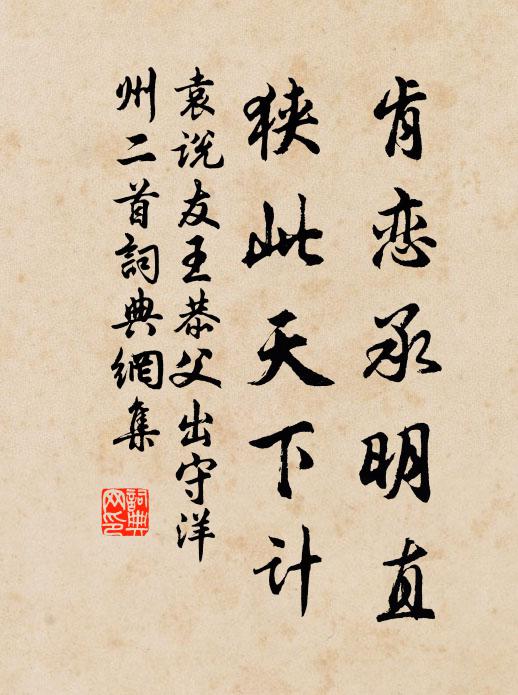 肯恋承明直
狭此天下计
袁说友王恭父出守洋
州二首詞典網集
詞典
网印